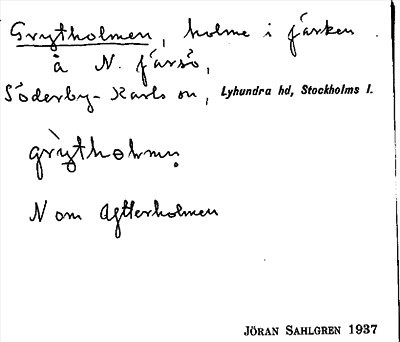 Grytholmen, holme i fjärden
å N. Järsö,
Söderby-Karls sn, Lyhundra hd, Stockholms l.
grỳthɵlmn̥
N om Agtterholmen
JÖRAN SAHLGREN 1937